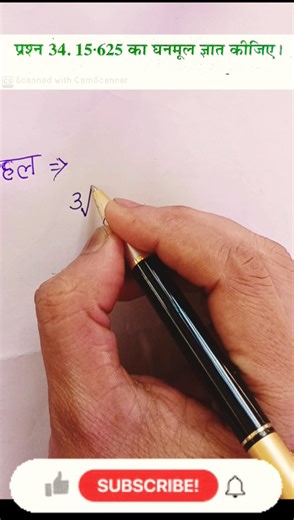 प्रश्न 34. 15·625 का घनमूल ज्ञात कीजिए।
Scanned with CamScanner
हल ⇒
3√
SUBSCRIBE!